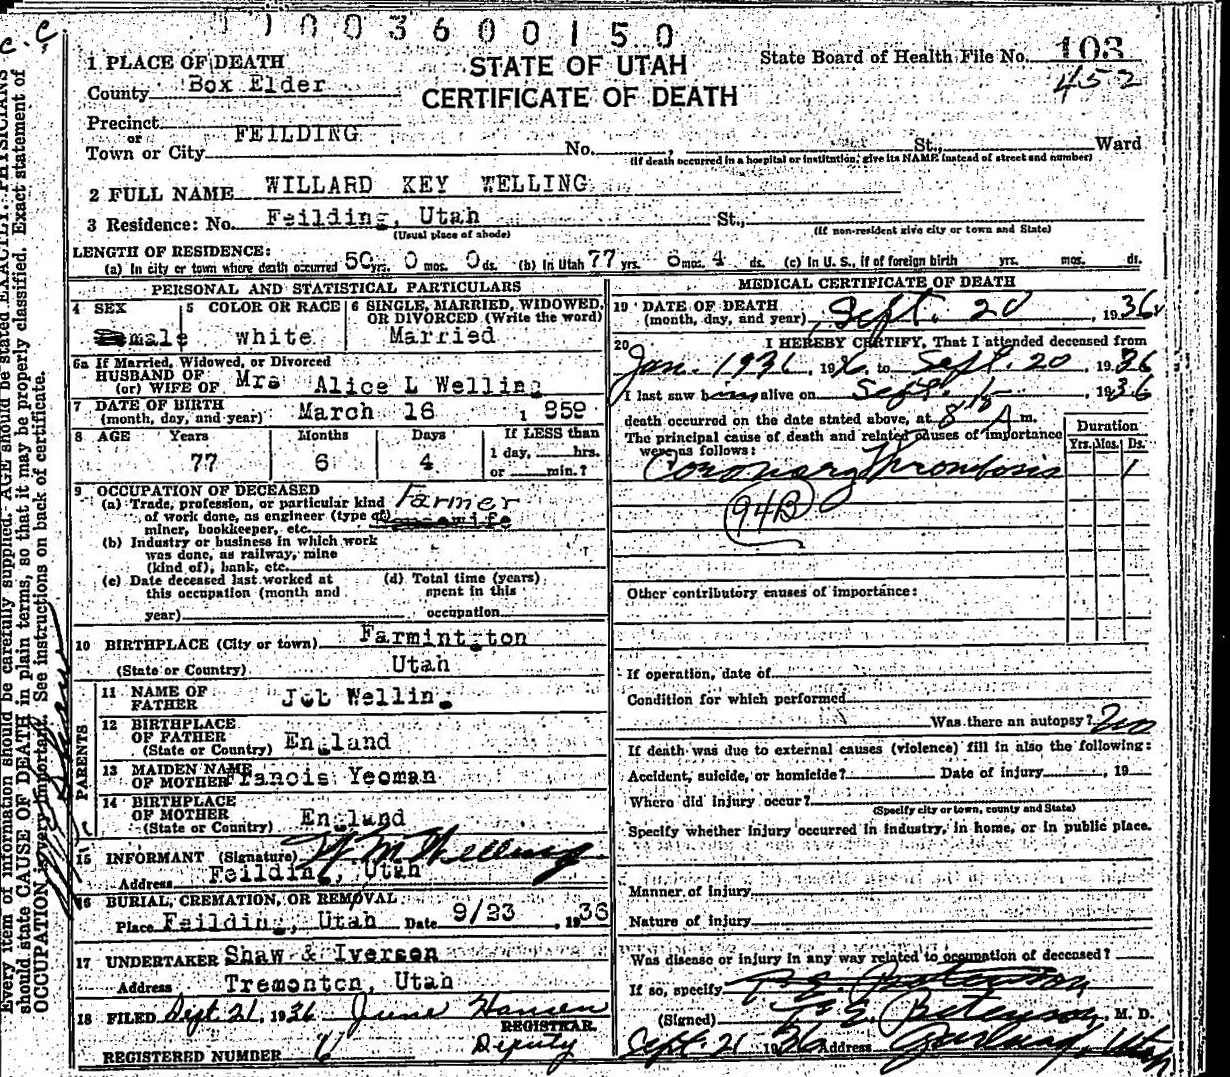 1 1 0 0 3 6 0 0 1 5 0
c. c.
1 PLACE OF DEATH
County Box Elder
STATE OF UTAH
CERTIFICATE OF DEATH
State Board of Health File No. 103
452
Precinct
or
Town or City FEILDING No. , St., Ward
(If death occurred in a hospital or institution, give its NAME instead of street and number)
2 FULL NAME WILLARD KEY WELLING
3 Residence: No. Feilding, Utah St.,
(Usual place of abode) (If non-resident give city or town and State)
LENGTH OF RESIDENCE:
(a) In city or town where death occurred 50 yrs. 0 mos. 0 ds. (b) In Utah 77 yrs. 6 mos. 4 ds. (c) In U. S., if of foreign birth yrs. mos. ds.
PERSONAL AND STATISTICAL PARTICULARS
4 SEX male
5 COLOR OR RACE white
6 SINGLE, MARRIED, WIDOWED, OR DIVORCED (Write the word)
Married
6a If Married, Widowed, or Divorced
HUSBAND OF
(or) WIFE OF Mrs Alice L Welling
7 DATE OF BIRTH
(month, day, and year) March 16 1859
8 AGE Years Months Days If LESS than
77 6 4 1 day, hrs.
or min.?
9 OCCUPATION OF DECEASED
(a) Trade, profession, or particular kind Farmer
of work done, as engineer (type of) Housewife
miner, bookkeeper, etc.
(b) Industry or business in which work
was done, as railway, mine
(kind of), bank, etc.
(c) Date deceased last worked at (d) Total time (years)
this occupation (month and spent in this
year) occupation
10 BIRTHPLACE (City or town) Farmington
(State or Country) Utah
PARENTS
11 NAME OF
FATHER Job Welling
12 BIRTHPLACE
OF FATHER
(State or Country) England
13 MAIDEN NAME
OF MOTHER Francis Yeoman
14 BIRTHPLACE
OF MOTHER
(State or Country) England
15 INFORMANT (Signature) W. M. Welling
Address Feilding, Utah
16 BURIAL, CREMATION, OR REMOVAL
Place Feilding, Utah Date 9/23, 1936
17 UNDERTAKER Shaw & Iverson
Address Tremonton, Utah
18 FILED Sept 21, 1936 June Hansen
REGISTRAR.
REGISTERED NUMBER 6 Deputy
MEDICAL CERTIFICATE OF DEATH
19 DATE OF DEATH
(month, day, and year) Sept. 20, 1936
20 I HEREBY CERTIFY, That I attended deceased from
Jan. 1931, 19 to Sept. 20 1936
I last saw him alive on Sept. 15 1936
death occurred on the date stated above, at 8 A m.
The principal cause of death and related causes of importance
were as follows:
Duration
Yrs. Mos. Ds.
Coronary Thrombosis 1
94B
Other contributory causes of importance:
If operation, date of
Condition for which performed
Was there an autopsy? no
If death was due to external causes (violence) fill in also the following:
Accident, suicide, or homicide? Date of injury , 19
Where did injury occur?
(Specify city or town, county and State)
Specify whether injury occurred in industry, in home, or in public place.
Manner of injury
Nature of injury
Was disease or injury in any way related to occupation of deceased?
If so, specify
(Signed) M. D.
Sept. 21 1936 Address Garland, Utah
Every item of information should be carefully supplied. AGE should be stated EXACTLY. PHYSICIANS
should state CAUSE OF DEATH in plain terms, so that it may be properly classified. Exact statement of
OCCUPATION is very important. See instructions on back of certificate.